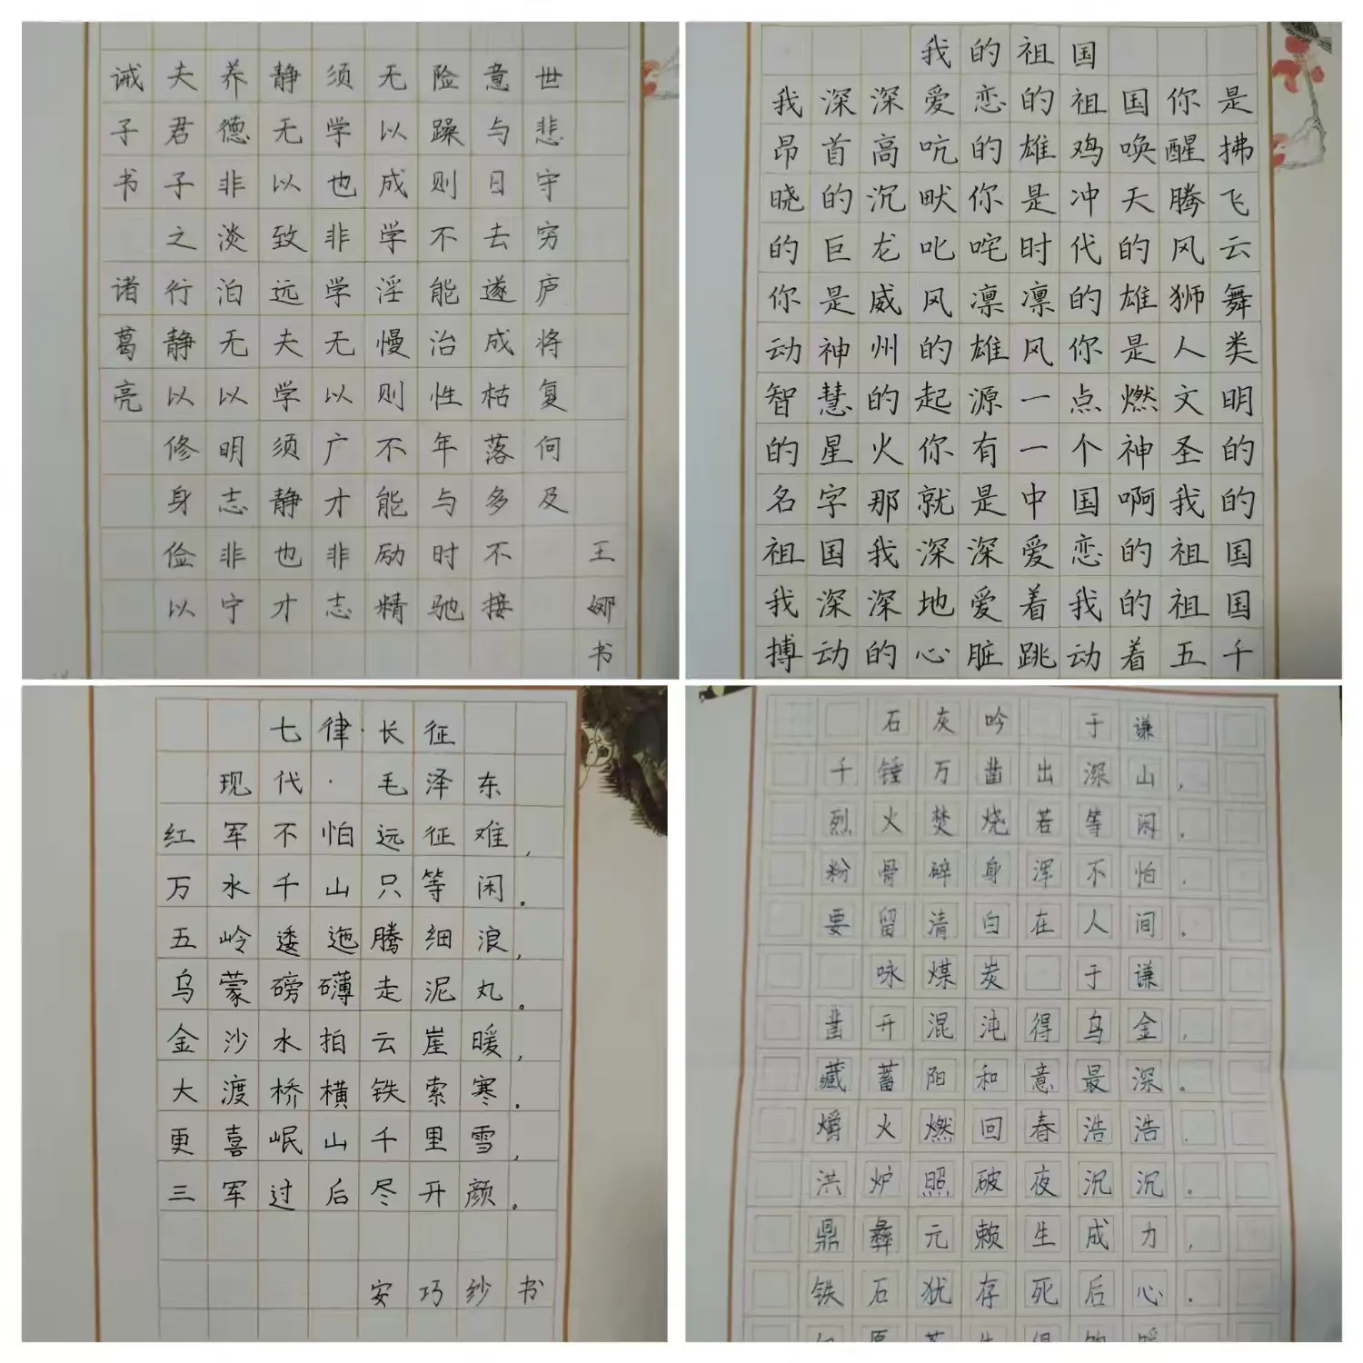 诫子书 诸葛亮
夫君子之行静以修身俭以
养德非淡泊无以明志非宁
静无以致远夫学须静也才
须学也非学无以广才非志
无以成学淫慢则不能励精
险躁则不能治性年与时驰
意与日去遂成枯落多不接
世悲守穷庐将复何及
王娜书
我的祖国
我深深爱恋的祖国你是
昂首高吭的雄鸡唤醒拂
晓的沉畎你是冲天腾飞
的巨龙叱咤时代的风云
你是威风凛凛的雄狮舞
动神州的雄风你是人类
智慧的起源一点燃文明
的星火你有一个神圣的
名字那就是中国啊我的
祖国我深深爱恋的祖国
我深深地爱着我的祖国
搏动的心脏跳动着五千
七律·长征
现代·毛泽东
红军不怕远征难,
万水千山只等闲。
五岭逶迤腾细浪,
乌蒙磅礴走泥丸。
金沙水拍云崖暖,
大渡桥横铁索寒。
更喜岷山千里雪,
三军过后尽开颜。
安巧纱书
石灰吟 于谦
千锤万凿出深山,
烈火焚烧若等闲。
粉骨碎身浑不怕,
要留清白在人间。
咏煤炭 于谦
凿开混沌得乌金,
藏蓄阳和意最深。
爝火燃回春浩浩,
洪炉照破夜沉沉。
鼎彝元赖生成力,
铁石犹存死后心。